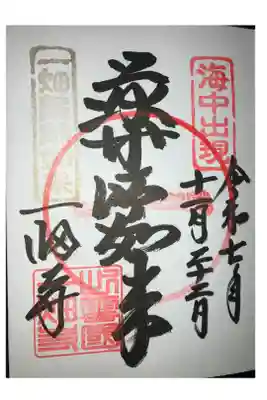 海中出現
令和七年
十一月二十二日
薬師如来
一畑寺